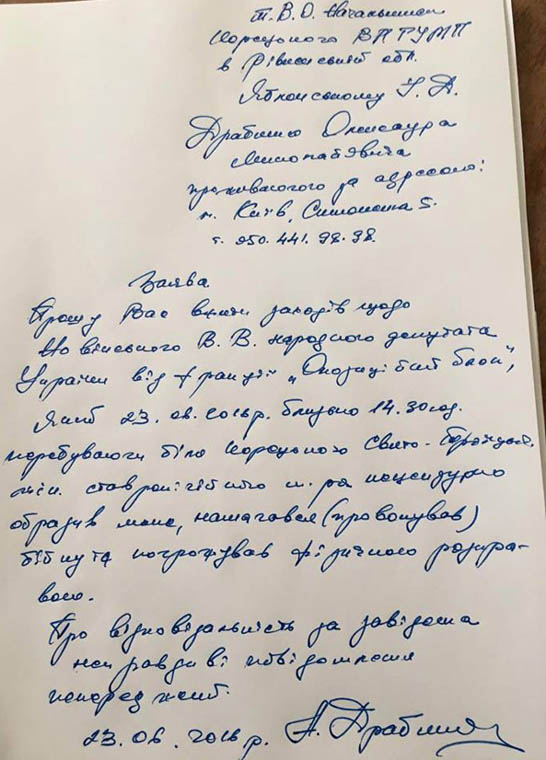 Т.В.О. Начальника
Корецького ВП ГУНП
в Рівненській обл.
Яблонському У. А.
Драбинко Олександра
Миколайовича
проживаючого за адресою:
м. Київ, 5.
т. 050.441.92.98
Заява
Прошу Вас вжити заходів щодо
В. В. народного депутата
України від фракції „Опозиційний блок",
Який 23.06.2016р. близько 14.30 год.
перебуваючи біля Корецького Свято-Троїцького
жін. ставропігійного м-ря нецензурно
образив мене, намагався (провокував)
бійку та погрожував фізичною розпра-
вою.
Про відповідальність за завідомо
неправдиві повідомлення
попереджений.
23.06.2016р. А. Драбинко